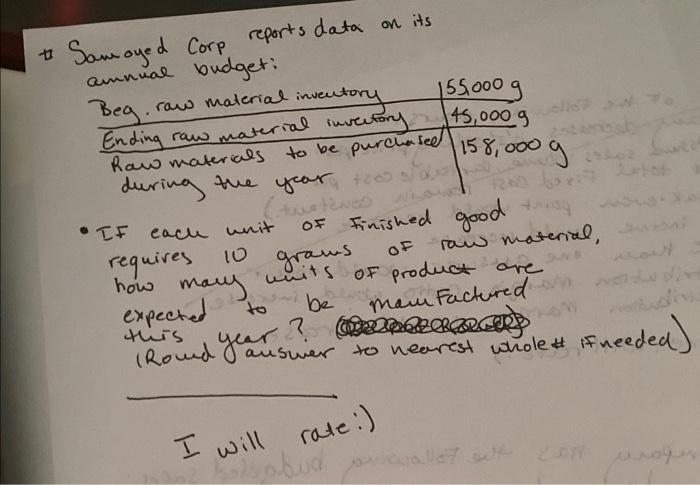 Samoyed Corp reports data on its
annual budget:
Beg. raw material inventory 55,000 g
Ending raw material inventory 45,000 g
Raw materials to be purchased 158,000 g
during the year
• IF each unit of Finished good
requires 10 grams of raw material,
how many units of product are
expected to be manufactured
this year?
(Round answer to nearest whole # if needed)
I will rate:)